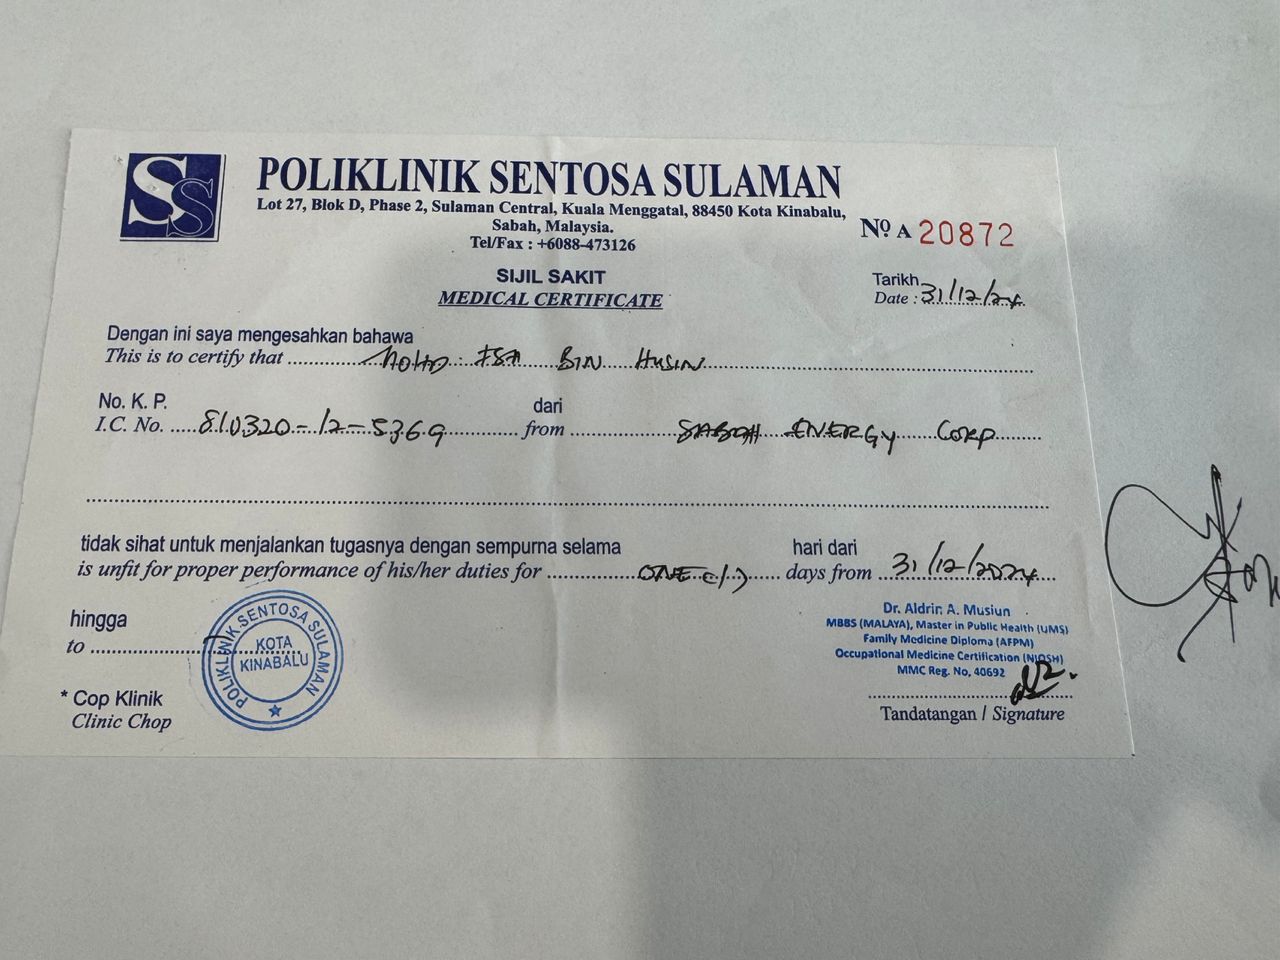 SS
POLIKLINIK SENTOSA SULAMAN
Lot 27, Blok D, Phase 2, Sulaman Central, Kuala Menggatal, 88450 Kota Kinabalu,
Sabah, Malaysia.
Tel/Fax : +6088-473126
Nº A 20872
SIJIL SAKIT
MEDICAL CERTIFICATE
Tarikh
Date : 31/12/24
Dengan ini saya mengesahkan bahawa
This is to certify that MOHD. ISA BIN HUSIN
No. K. P. dari
I.C. No. 810320-12-5369 from SABAH ENERGY CORP
tidak sihat untuk menjalankan tugasnya dengan sempurna selama hari dari
is unfit for proper performance of his/her duties for ONE (1) days from 31/12/2024
hingga
to
* Cop Klinik
Clinic Chop
POLIKLINIK SENTOSA SULAMAN
KOTA
KINABALU
Dr. Aldrin A. Musiun
MBBS (MALAYA), Master in Public Health (UMS)
Family Medicine Diploma (AFPM)
Occupational Medicine Certification (NIOSH)
MMC Reg. No, 40692
Tandatangan / Signature